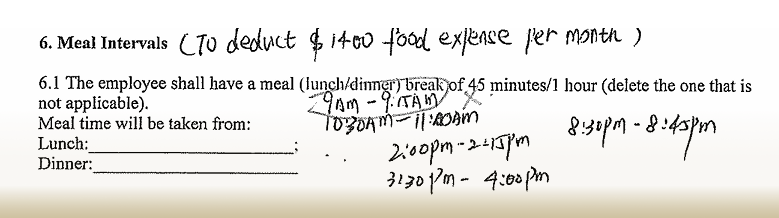 6. Meal Intervals (To deduct $ 1400 food expense per month)
6.1 The employee shall have a meal (lunch/dinner) break of 45 minutes/1 hour (delete the one that is
not applicable).
9AM - 9:15AM
Meal time will be taken from:
1030AM - 11:00AM
8:30pm - 8:45pm
Lunch: ;
2:00pm - 2:15pm
Dinner:
3:30pm - 4:00pm